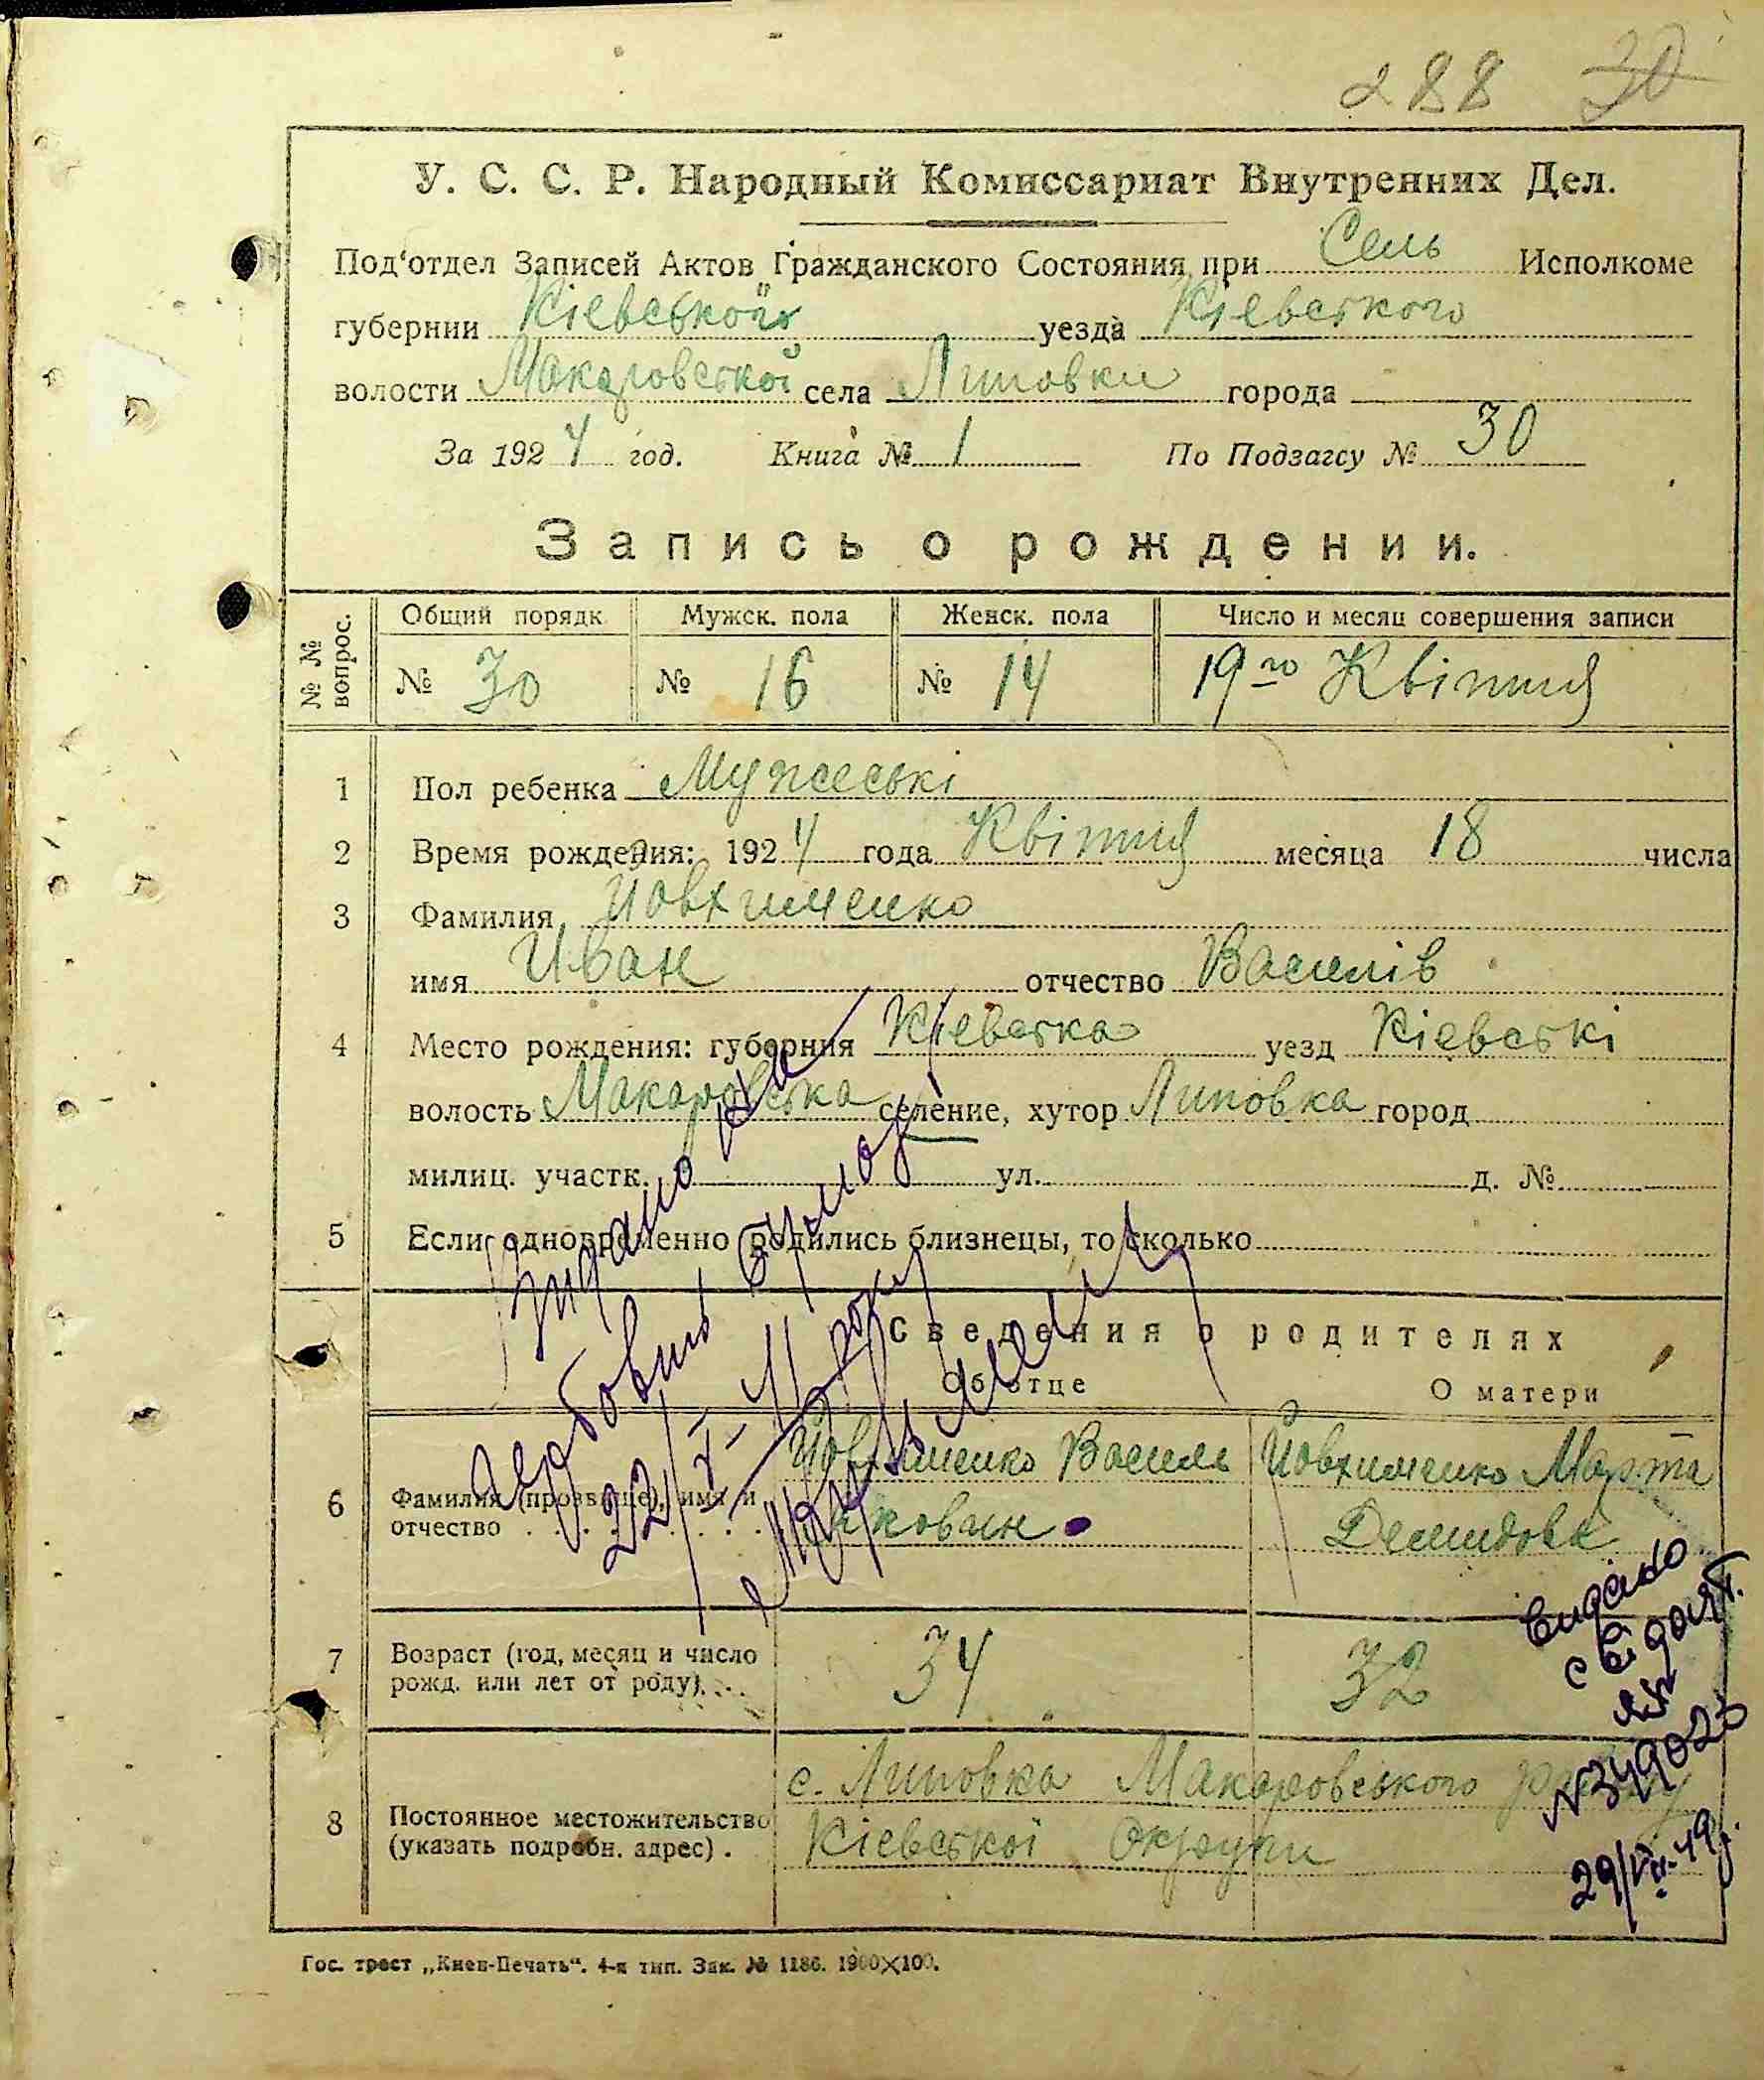 288 30
У. С. С. Р. Народный Комиссариат Внутренних Дел.
Под‘отдел Записей Актов Гражданского Состояния при Сель Исполкоме
губернии Кіевської уезда Кіевського
волости Макаровської села Липовки города
За 1924 год. Книга № 1 По Подзагсу № 30
Запись о рождении.
№ № вопрос. Общий порядк Мужск. пола Женск. пола Число и месяц совершения записи
№ 30 № 16 № 14 19го Квітня
1 Пол ребенка Мужеські
2 Время рождения: 1924 года Квітня месяца 18 числа
3 Фамилия Йовхименко
имя Иван отчество Василів
4 Место рождения: губерния Кіевска уезд Кіевські
волость Макаровська селение, хутор Липовка город
милиц. участк. ул. д. №
5 Если одновременно родились близнецы, то сколько
Сведения о родителях
Об отце О матери
6 Фамилия (прозвище), имя и отчество . . . . . . . . Йовхименко Василь Яковин Йовхименко Марта Демидова
7 Возраст (год, месяц и число рожд. или лет от роду) . . 34 32
8 Постоянное местожительство (указать подробн. адрес) . с. Липовка Макаровського
Кіевської Округи
Видано
22/X-41 року
видано
свідоцт.
№ 349026
29/VII-49р.
Гос. трест „Киев-Печать“. 4-я тип. Зак. № 1186. 1900×100.